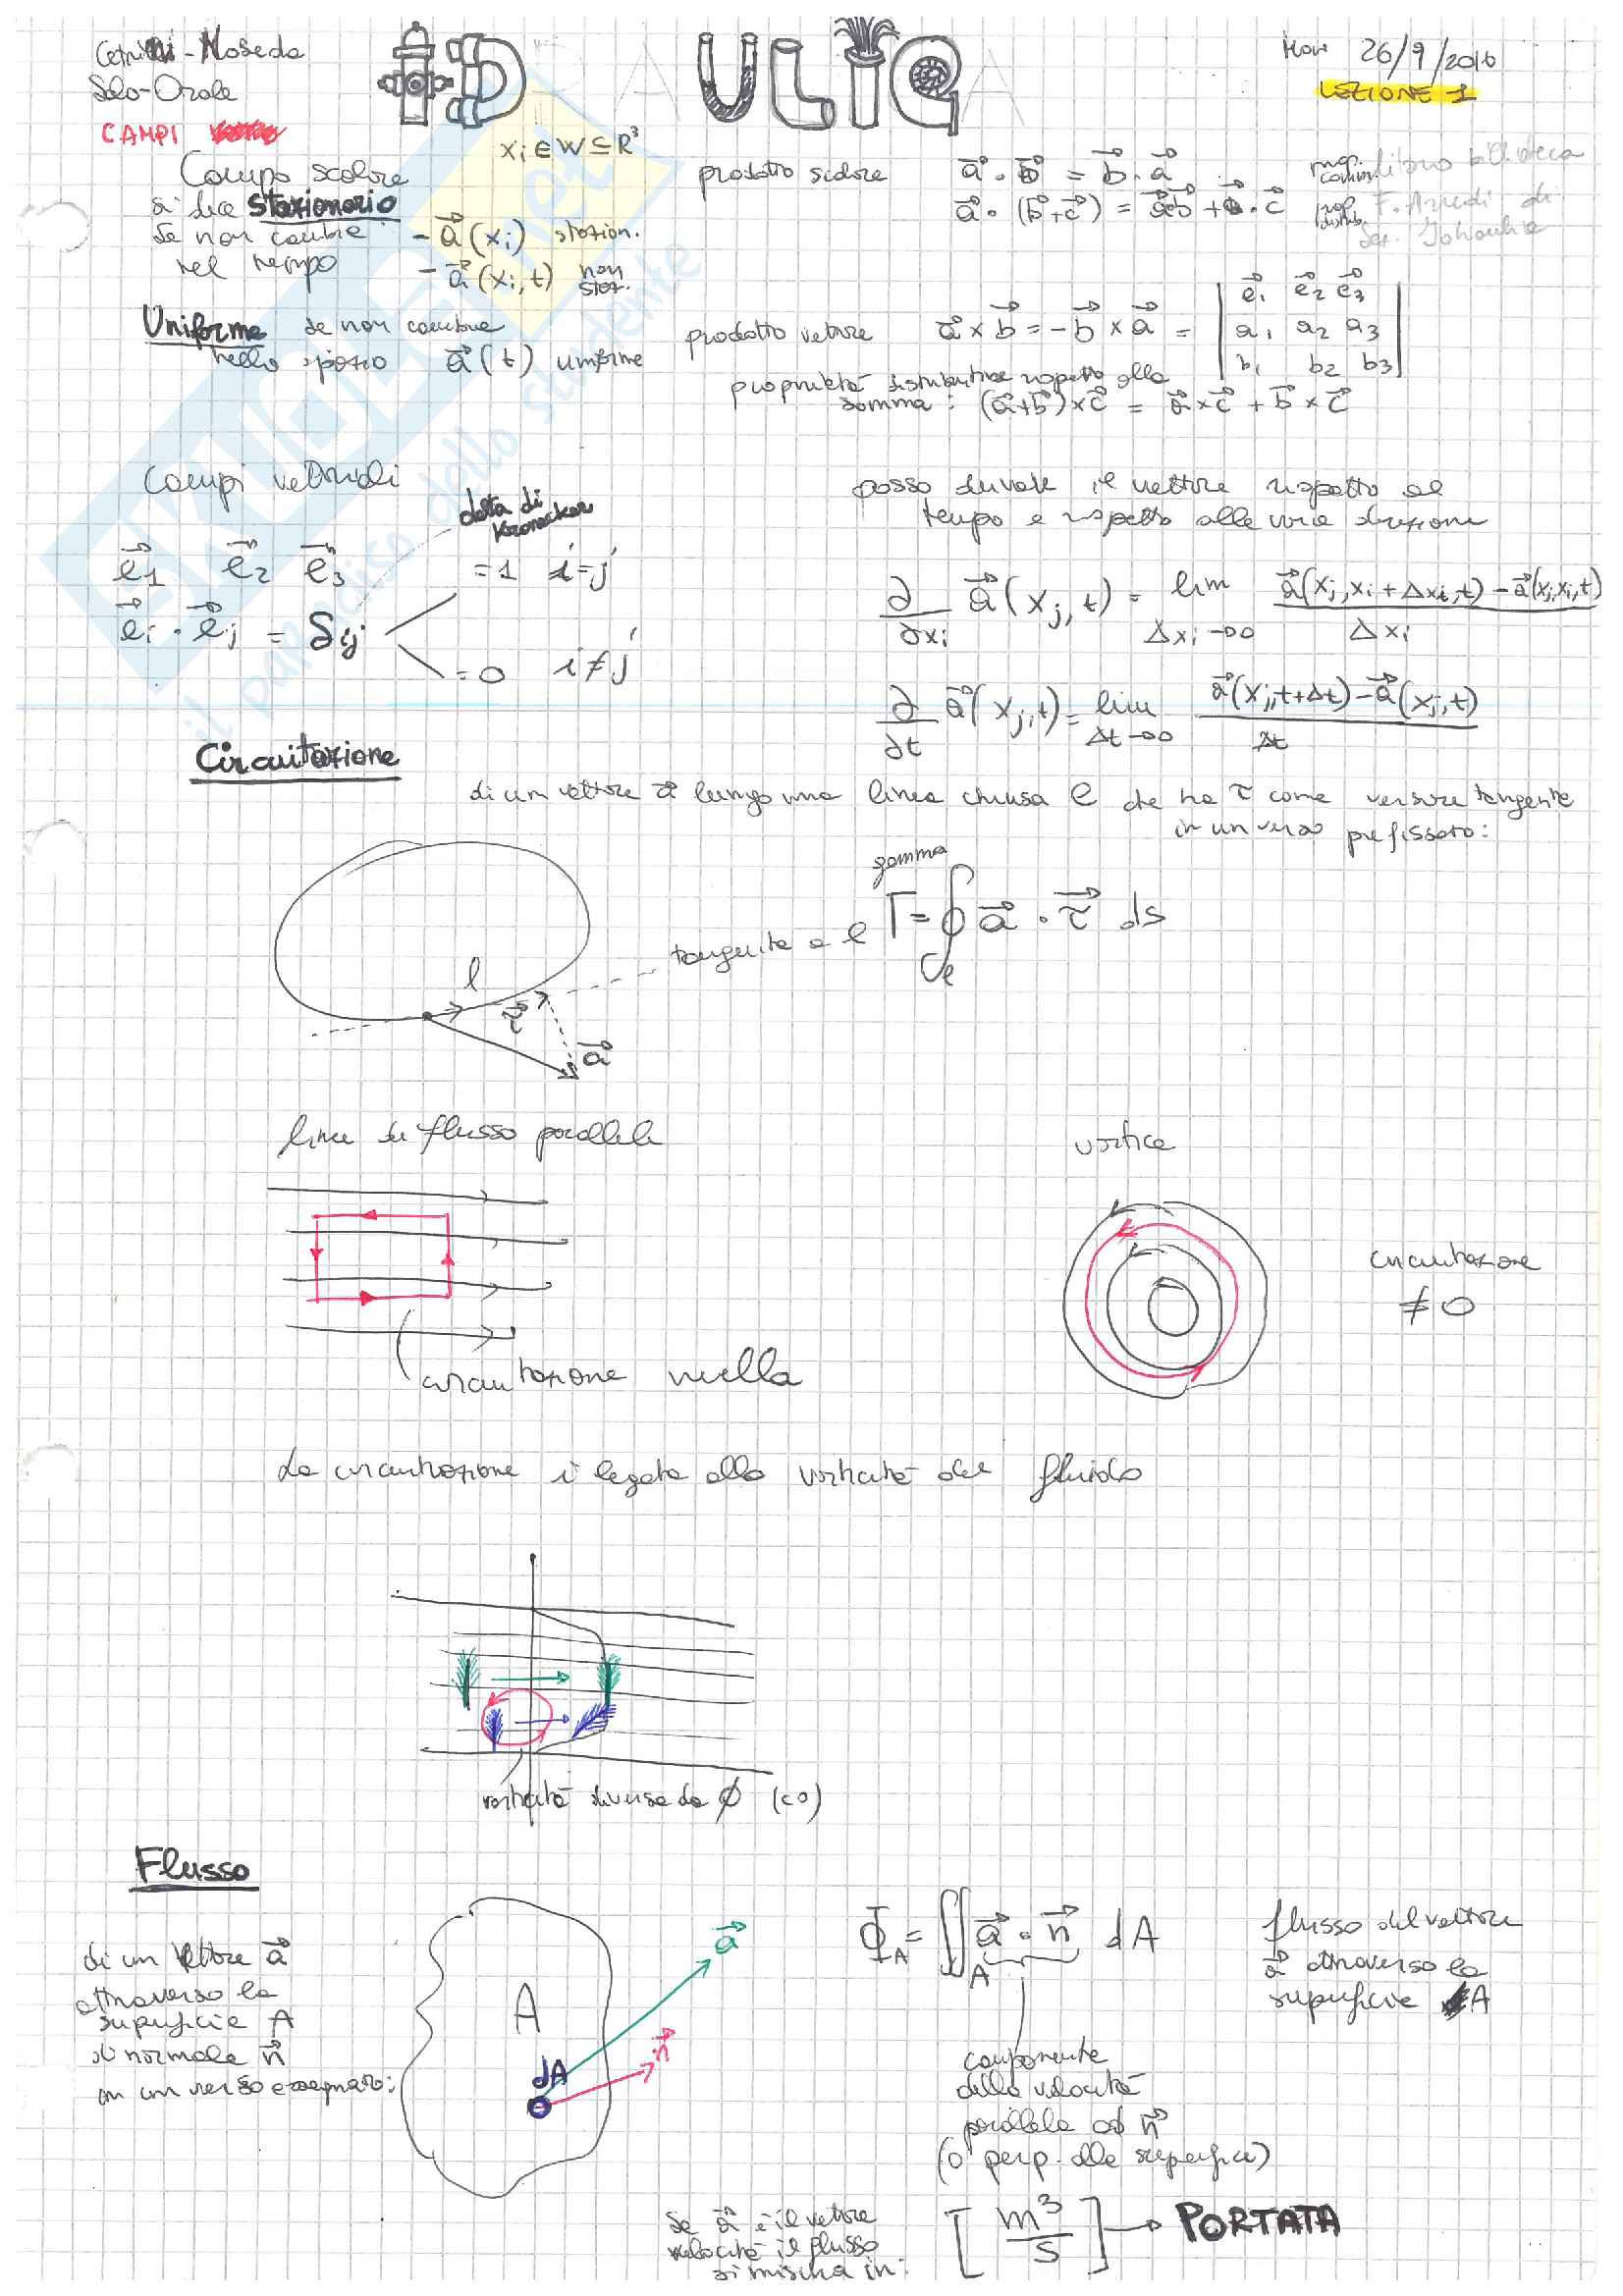 IDRAULICA
Solo-Orale
26/9/2016
LEZIONE 1
CAMPI
Campo scalare
xi ∈ W ⊆ R³
si dice stazionario
se non cambia
nel tempo
- a⃗(xi) stazion.
- a⃗(xi,t) non staz.
Uniforme se non cambia
nello spazio a⃗(t) uniforme
prodotto scalare a⃗ · b⃗ = b⃗ · a⃗
a⃗ · (b⃗+c⃗) = a⃗b⃗ + a⃗ · c⃗
libro biblioteca
prodotto vettore a⃗ × b⃗ = -b⃗ × a⃗ = | e⃗1 e⃗2 e⃗3
a1 a2 a3
b1 b2 b3 |
proprietà distributiva rispetto alla
somma: (a⃗+b⃗)×c⃗ = a⃗×c⃗ + b⃗×c⃗
Campi vettoriali
delta di
Kronecker
e⃗1 e⃗2 e⃗3
e⃗i · e⃗j = δij
=1 i=j
=0 i≠j
posso derivare il vettore rispetto al
tempo e rispetto alle varie direzioni
∂/∂xi a⃗(xj,t) = lim Δxi→0 a⃗(xj,xi+Δxi,t) - a⃗(xj,xi,t) / Δxi
∂/∂t a⃗(xj,t) = lim Δt→0 a⃗(xj,t+Δt) - a⃗(xj,t) / Δt
Circuitazione
di un vettore a⃗ lungo una linea chiusa l che ha τ come versore tangente
in un verso prefissato:
gamma
tangente a l
Γ = ∮ a⃗ · τ⃗ ds
l
τ⃗
a⃗
linee di flusso parallele
vortice
circuitazione
≠ 0
circuitazione nulla
La circuitazione è legata alla vorticità del fluido
vorticità diversa da Ø (<0)
Flusso
di un vettore a⃗
attraverso la
superficie A
di normale n⃗
in un verso assegnato:
A
dA
a⃗
n⃗
Φ_A = ∬_A a⃗ · n⃗ dA
flusso del vettore
a⃗ attraverso la
superficie A
componente
della velocità
parallela ad n⃗
(o perp. alla superficie)
Se a⃗ è il vettore
velocità il flusso
si misura in:
[m³/s] → PORTATA